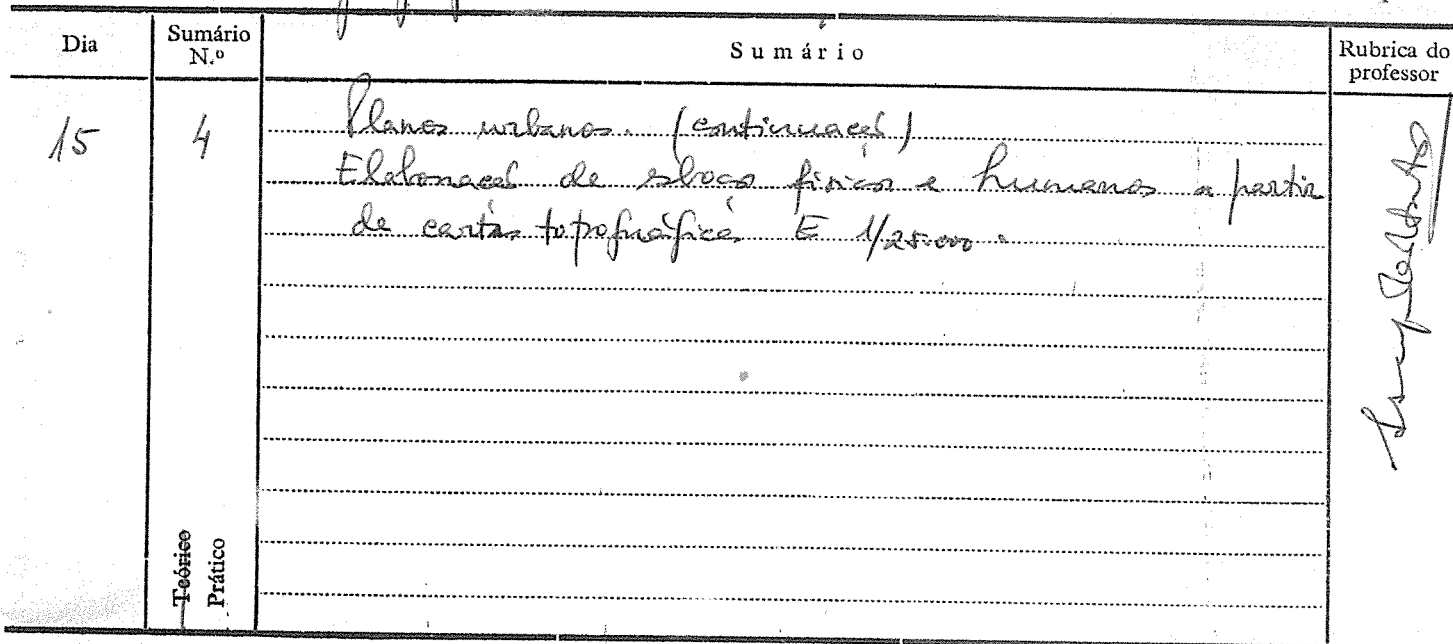 Dia
Sumário N.º
Sumário
Rubrica do professor
15
4
Planos urbanos. (continuação)
Elaboração de esboços físicos e humanos a partir
de cartas topográficas E 1/25.000.
Teórico
Prático